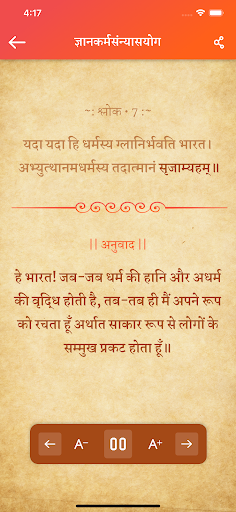 4:17
ज्ञानकर्मसंन्यासयोग
~: श्लोक • 7 :~
यदा यदा हि धर्मस्य ग्लानिर्भवति भारत।
अभ्युत्थानमधर्मस्य तदात्मानं सृजाम्यहम्॥
|| अनुवाद ||
हे भारत! जब-जब धर्म की हानि और अधर्म
की वृद्धि होती है, तब-तब ही मैं अपने रूप
को रचता हूँ अर्थात साकार रूप से लोगों के
सम्मुख प्रकट होता हूँ॥
A- A+